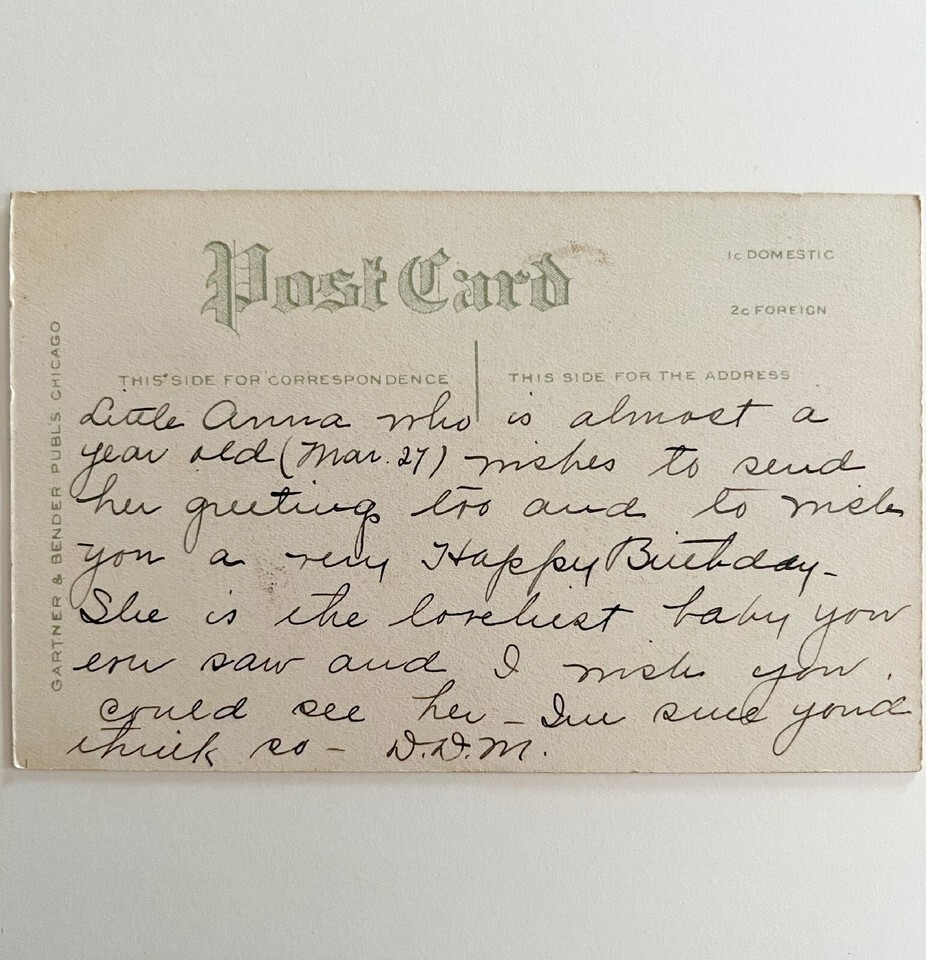 Post Card
1c DOMESTIC
2c FOREIGN
THIS SIDE FOR CORRESPONDENCE
THIS SIDE FOR THE ADDRESS
GARTNER & BENDER PUBLS CHICAGO
Little Anna who is almost a
year old (Mar. 27) wishes to send
her greetings too and to wish
you a very Happy Birthday -
She is the loveliest baby you
ever saw and I wish you
could see her - Im sure youd
think so - D.D.M.